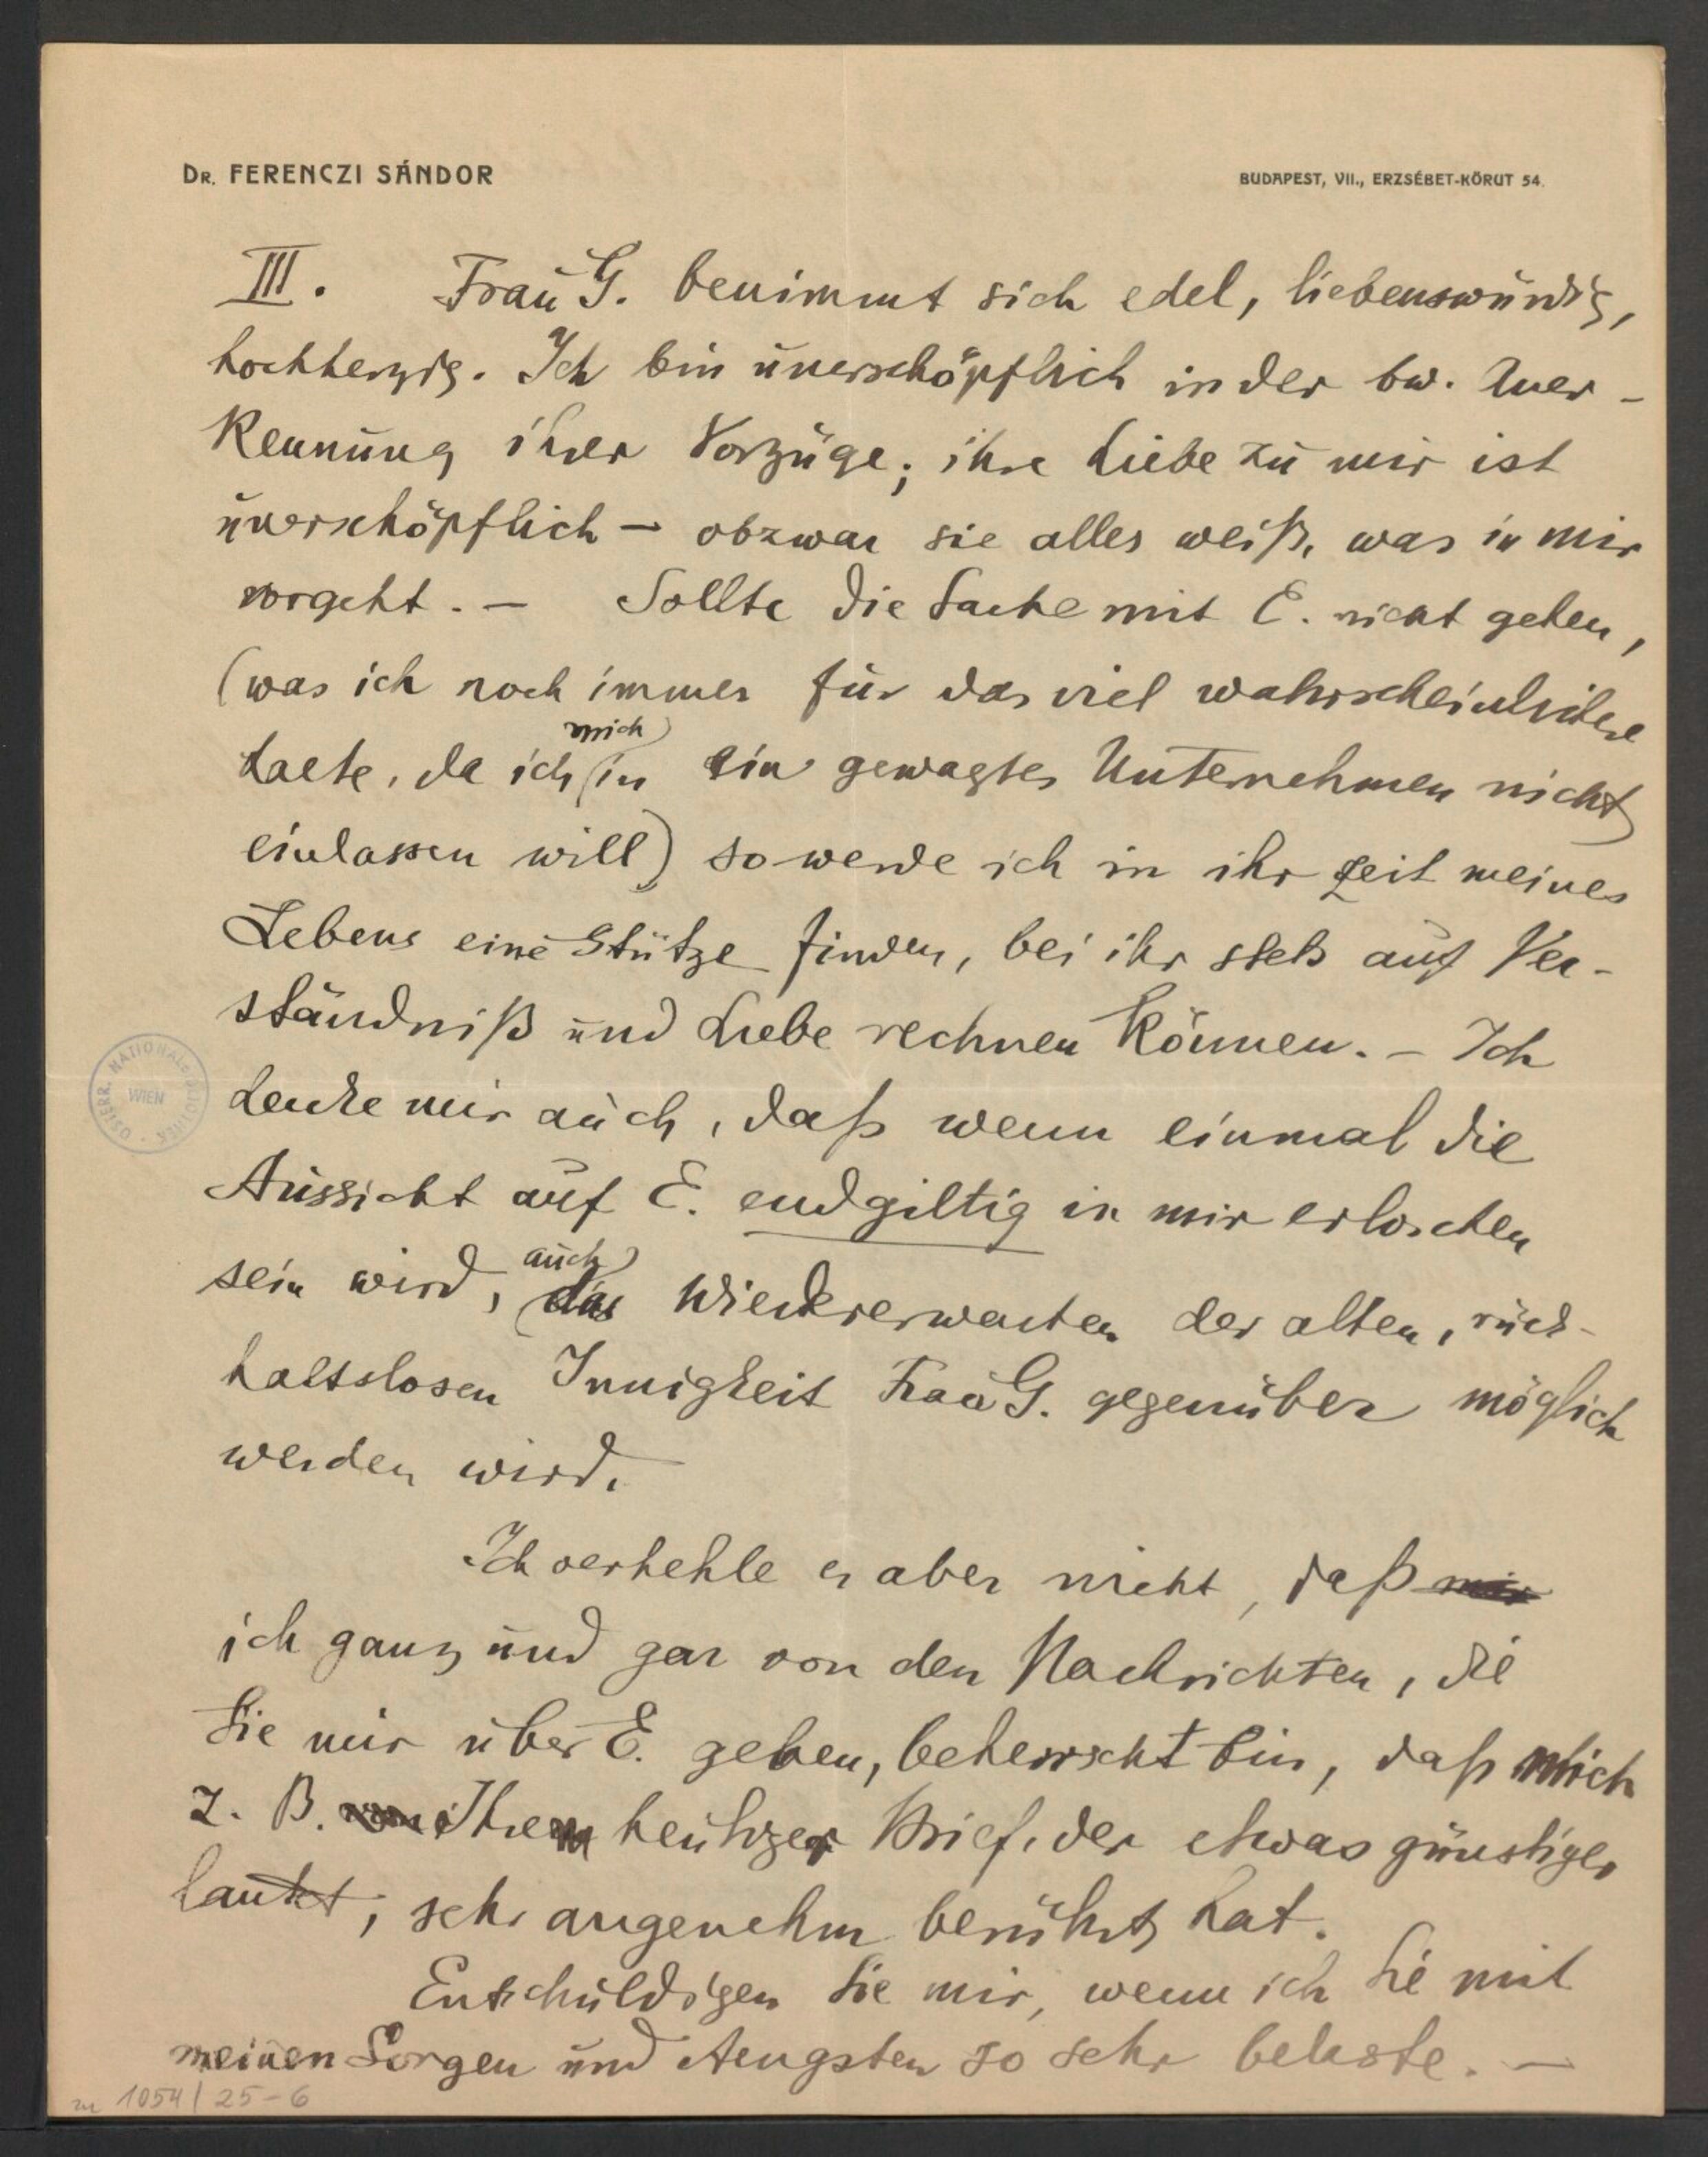 Dr. FERENCZI SÁNDOR
BUDAPEST, VII., ERZSÉBET-KÖRUT 54.
III. Frau G. benimmt sich edel, liebenswürdig,
hochherzig. Ich bin unerschöpflich in der bw. Aner-
kennung ihrer Vorzüge; ihre Liebe zu mir ist
unerschöpflich – obzwar sie alles weiß, was in mir
vorgeht. – Sollte die Sache mit E. nicht gehen,
(was ich noch immer für das viel wahrscheinlichere
halte, da ich mich in ein gewagtes Unternehmen nicht
einlassen will) so werde ich in ihr zeit meines
Lebens eine Stütze finden, bei ihr stets auf Ver-
ständniß und Liebe rechnen können. – Ich
denke mir auch, daß wenn einmal die
Aussicht auf E. endgiltig in mir erloschen
sein wird, auch das Wiedererwachen der alten, rück-
haltslosen Innigkeit Frau G. gegenüber möglich
werden wird.
Ich verhehle es aber nicht, daß mir
ich ganz und gar von den Nachrichten, die
Sie mir über E. geben, beherrscht bin, daß mich
z. B. von Ihrem heutiger Brief, der etwas günstiger
lautet, sehr angenehm berührt hat.
Entschuldigen Sie mir, wenn ich Sie mit
meinen Sorgen und Aengsten so sehr belaste. –
zu 1054/25-6
ÖSTERR. NATIONALBIBLIOTHEK
WIEN